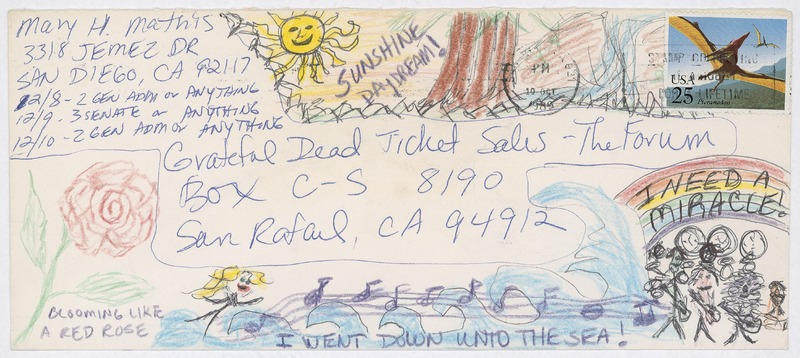 Mary H. Mathis
3318 JEMEZ DR
SAN DIEGO, CA 92117
12/8 - 2 GEN ADM or ANYTHING
12/9 - 3 SENATE or ANYTHING
12/10 - 2 GEN ADM or ANYTHING
SUNSHINE
DAYDREAM!
PM
USA
25
Pteranodon
LIFETIME
Grateful Dead Ticket Sales - The Forum
Box C-S 8190
San Rafael, CA 94912
I NEED A
MIRACLE!
BLOOMING LIKE
A RED ROSE
I WENT DOWN UNTO THE SEA!